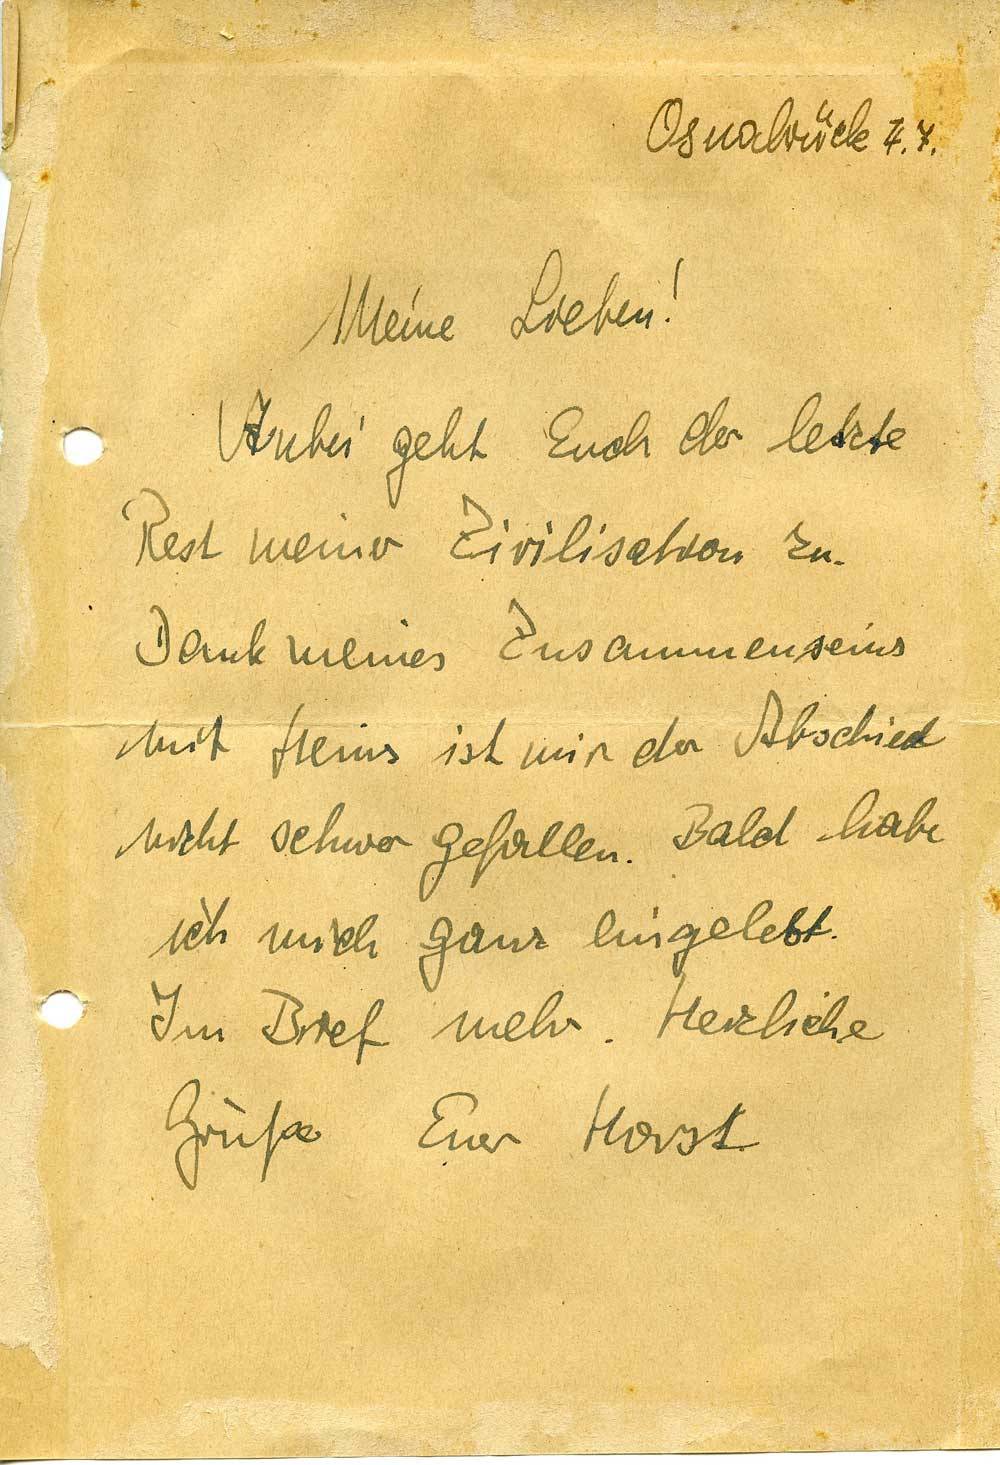 Osnabrück 7.7.
Meine Lieben!
Anbei geht Euch der letzte
Rest meiner Zivilisation zu.
Dank meines Zusammenseins
mit Heins ist mir der Abschied
nicht schwer gefallen. Bald habe
ich mich ganz eingelebt.
Im Brief mehr. Herzliche
Grüße Euer Horst